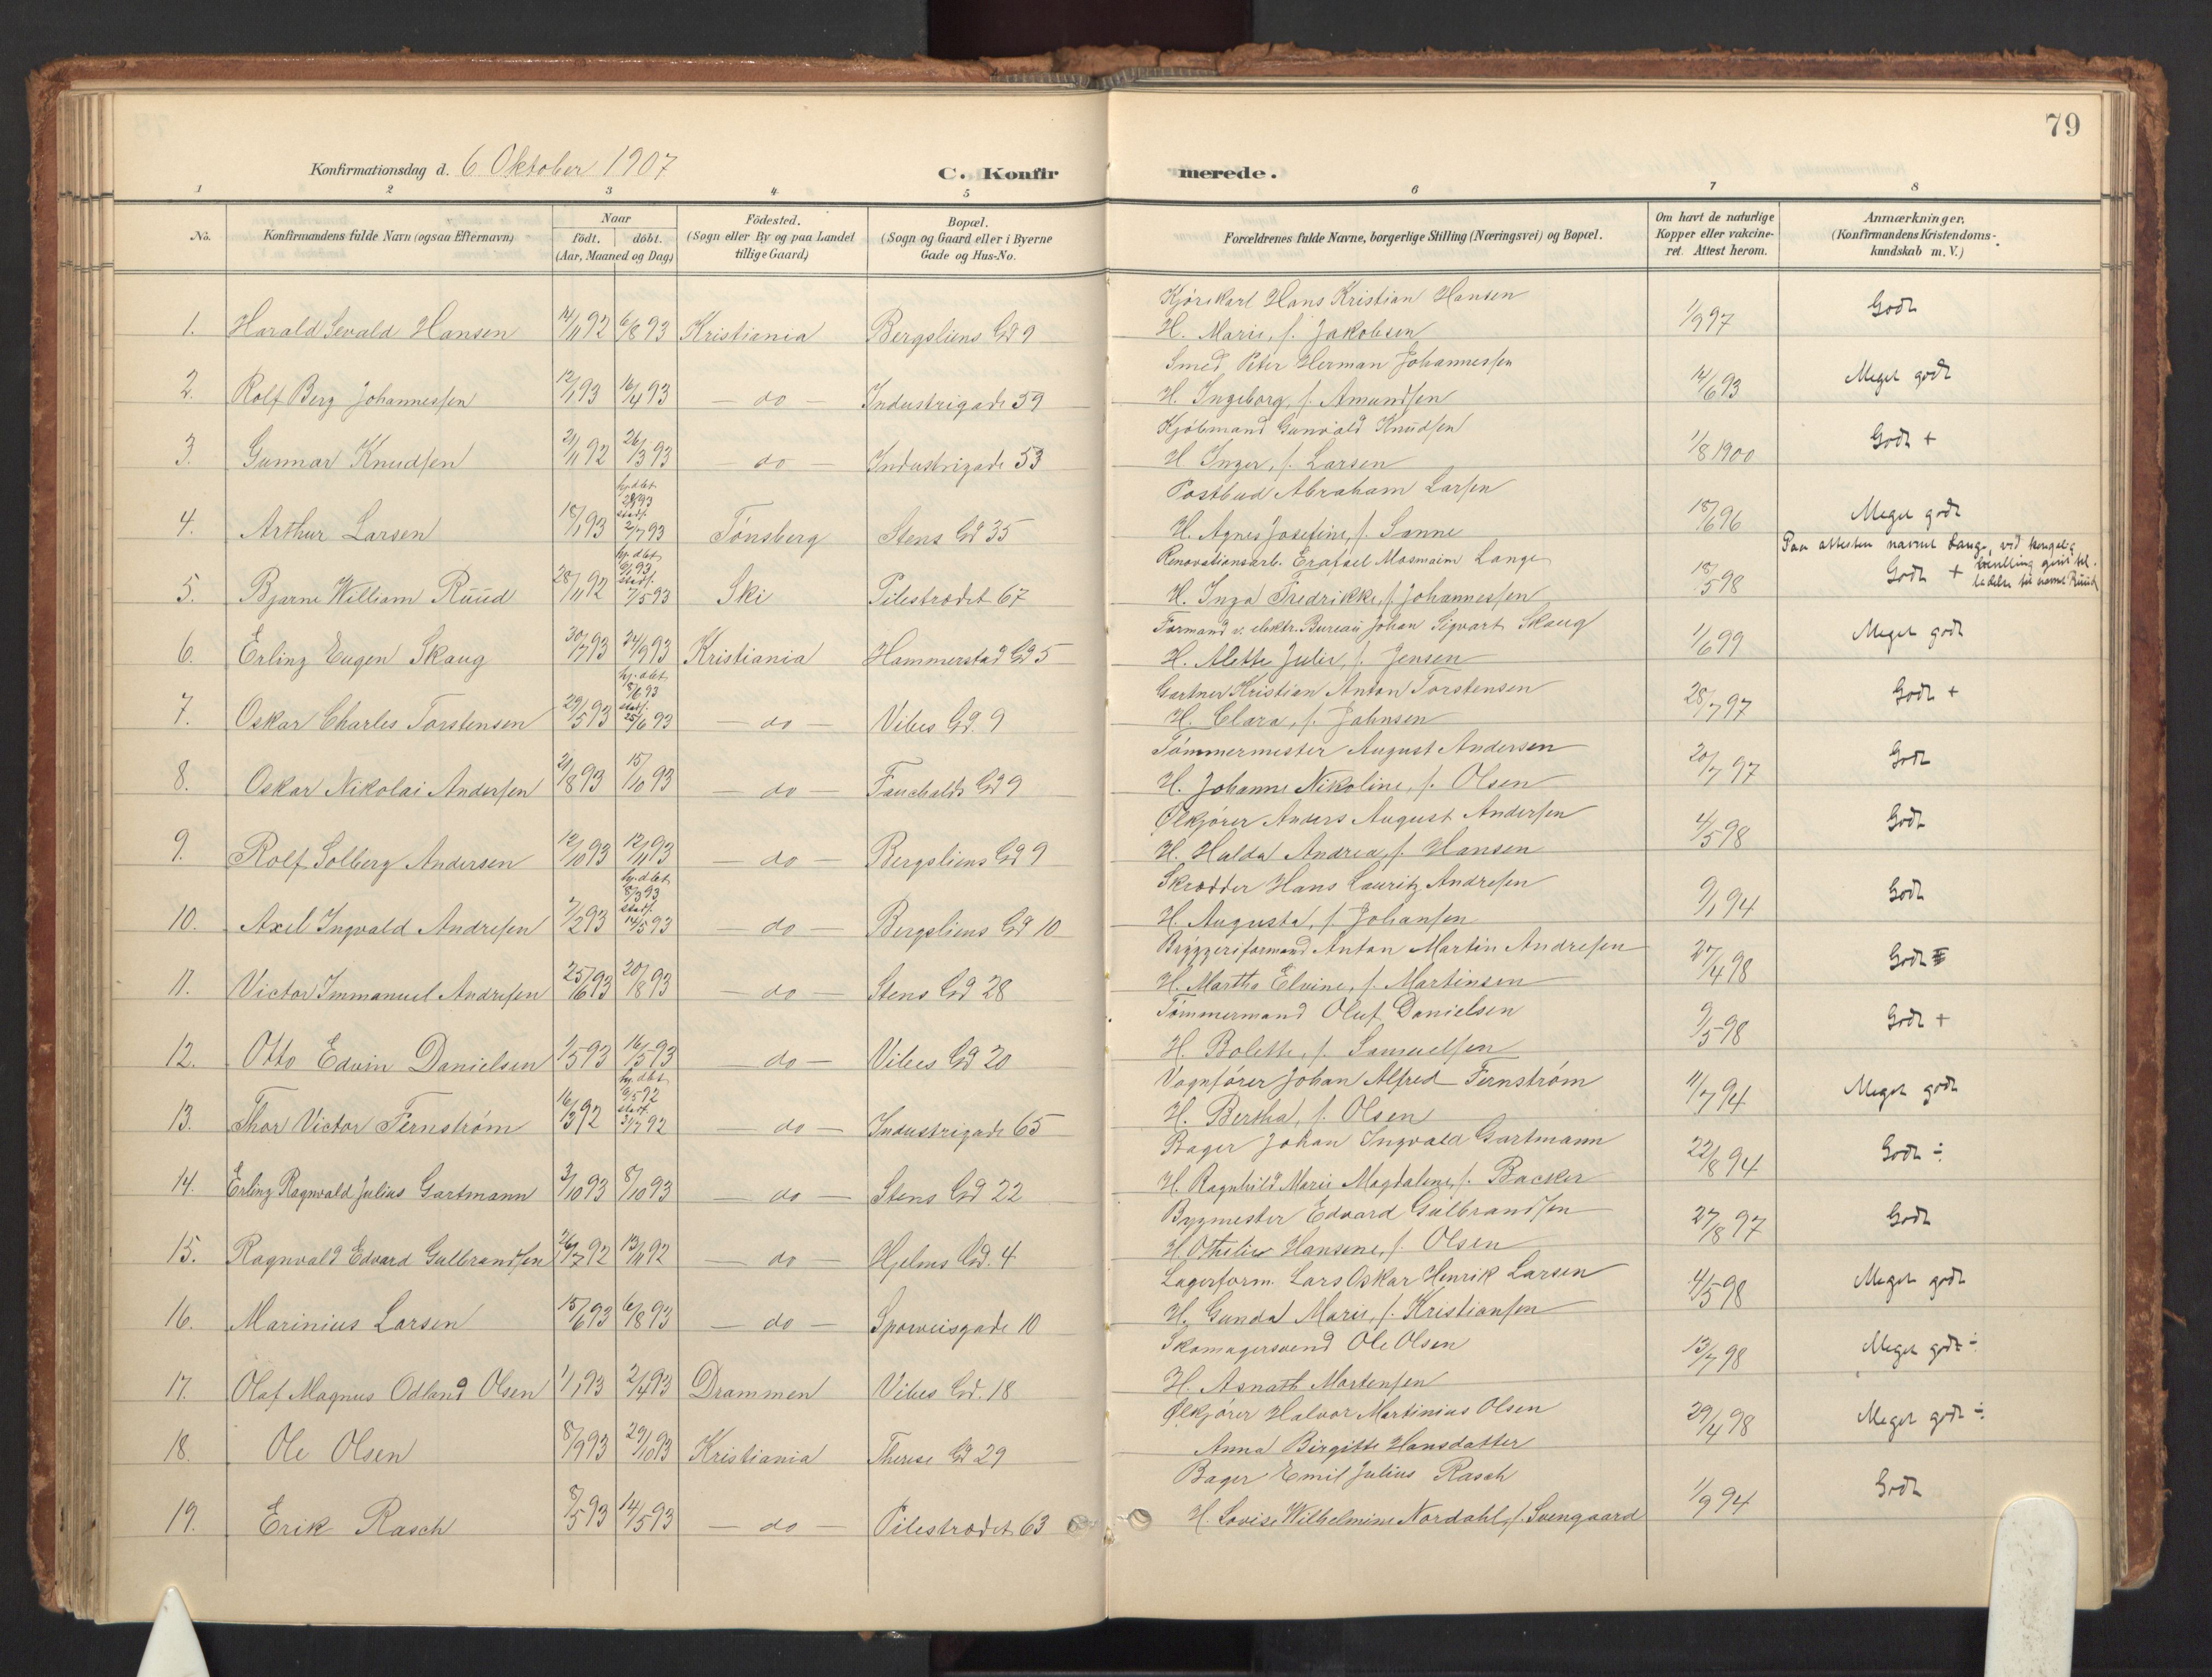 79
Konfirmationsdag d. 6 Oktober 1907
C. Konfirmerede.
1 2 3 4 5 6 7 8
No.
Konfirmandens fulde Navn (ogsaa Efternavn)
Naar
födt. döbt.
(Aar, Maaned og Dag)
Födested.
(Sogn eller By og paa Landet
tillige Gaard)
Bopæl.
(Sogn og Gaard eller i Byerne
Gade og Hus-No.
Forældrenes fulde Navne, borgerlige Stilling (Næringsvei) og Bopæl.
Om havt de naturlige
Kopper eller vakcine-
ret. Attest herom.
Anmærkninger.
(Konfirmandens Kristendoms-
kundskab m. V.)
Kjørekarl Hans Kristian Hansen
1. Harald Sevald Hansen 14/11 92 6/8 93 Kristiania Bergsliens Gd 9 H. Marie, f. Jakobsen 1/9 97 Godt
Smed Peter Herman Johannessen
2. Rolf Berg Johannessen 12/1 93 16/4 93 — do — Industrigade 39 H. Ingeborg, f. Amundsen 14/6 93 Meget godt
Kjøbmand Gunvald Knudsen
3. Gunnar Knudsen 21/11 92 26/3 93 — do — Industrigade 53 H Inger, f. Larsen 1/8 1900 Godt +
hj. dbt.
stadf.
Postbud Abraham Larsen
4. Arthur Larsen 18/1 93 2/7 93 Tønsberg Stens Gd 35 H. Agnes Josefine, f. Sanne 18/6 96 Meget godt
hj. dbt.
6/1 93
stadf.
Renovationsarb. Lange
Paa attesten navnet Lange, ved kongelig
bevilling givet til-
ladelse til navnet Ruud
5. Bjarne William Ruud 28/11 92 7/5 93 Ski Pilestrædet 67 H. Inga Fredrikke, f. Johannessen 18/5 98 Godt +
Formand v. elektr. Bureau Johan Sigvart Skaug
6. Erling Eugen Skaug 30/7 93 24/9 93 Kristiania Hammerstad Gd 5 H. Alette Julie, f. Jensen 1/6 99 Meget godt
hj. dbt.
8/6 93
stadf.
Gartner Kristian Anton Torstensen
7. Oskar Charles Torstensen 29/5 93 25/6 93 — do — Vibes Gd. 9 H. Clara, f. Johnsen 28/7 97 Godt +
Tømmermester August Andersen
8. Oskar Nikolai Andersen 21/8 93 15/10 93 — do — Fauchalds Gd 9 H. Johanne Nikoline, f. Olsen 20/7 97 Godt
Ølkjører Anders August Andersen
9. Rolf Solberg Andersen 12/10 93 12/11 93 — do — Bergsliens Gd 9 H. Halda Andrea, f. Hansen 4/5 98 Godt
hj. dbt.
8/3 93
stadf.
Skrædder Hans Lauritz Andresen
10. Axel Ingvald Andresen 7/2 93 14/5 93 — do — Bergsliens Gd 10 H. Augusta, f. Johansen 9/1 94 Godt
Bryggeriformand Anton Martin Andresen
11. Victor Immanuel Andresen 25/6 93 20/8 93 — do — Stens Gd 28 H. Martha Elvine, f. Martinsen 27/4 98 Godt
Tømmermand Oluf Danielsen
12. Otto Edvin Danielsen 1/5 93 16/5 93 — do — Vibes Gd 20 H. Bolette, f. Samuelsen 9/5 98 Godt +
hj. dbt.
6/5 92
stadf.
Vognfører Johan Alfred Fernstrøm
13. Thor Victor Fernstrøm 16/3 92 31/7 92 — do — Industrigade 65 H. Bertha, f. Olsen 11/7 94 Meget godt
Bager Johan Ingvald Gartmann
14. Erling Ragnvald Julius Gartmann 3/10 93 8/10 93 — do — Stens Gd 22 H. Ragnhild Marie Magdalene, f. Backer 22/8 94 Godt ÷
Bygmester Edvard Gulbrandsen
15. Ragnvald Edvard Gulbrandsen 26/7 92 13/11 92 — do — Hjelms Gd. 4 H. Othilie Hansene, f. Olsen 27/8 97 Godt
Lagerform. Lars Oskar Henrik Larsen
16. Marinius Larsen 15/6 93 6/8 93 — do — Sporveisgade 10 H. Gunda Marie, f. Kristiansen 4/5 98 Meget godt
Skomagersvend Ole Olsen
17. Olaf Magnus Odland Olsen 1/1 93 2/4 93 Drammen Vibes Gd. 18 H. Asnath Mortensen 13/7 98 Meget godt ÷
Ølkjører Halvor Martinius Olsen
18. Ole Olsen 8/9 93 29/10 93 Kristiania Therese Gd 29 Anna Birgitte Hansdatter 29/4 98 Meget godt ÷
Bager Emil Julius Rasch
19. Erik Rasch 8/5 93 14/5 93 — do — Pilestrædet 63 H. Lovise Wilhelmine Nordahl, f. Svengaard 1/9 94 Godt